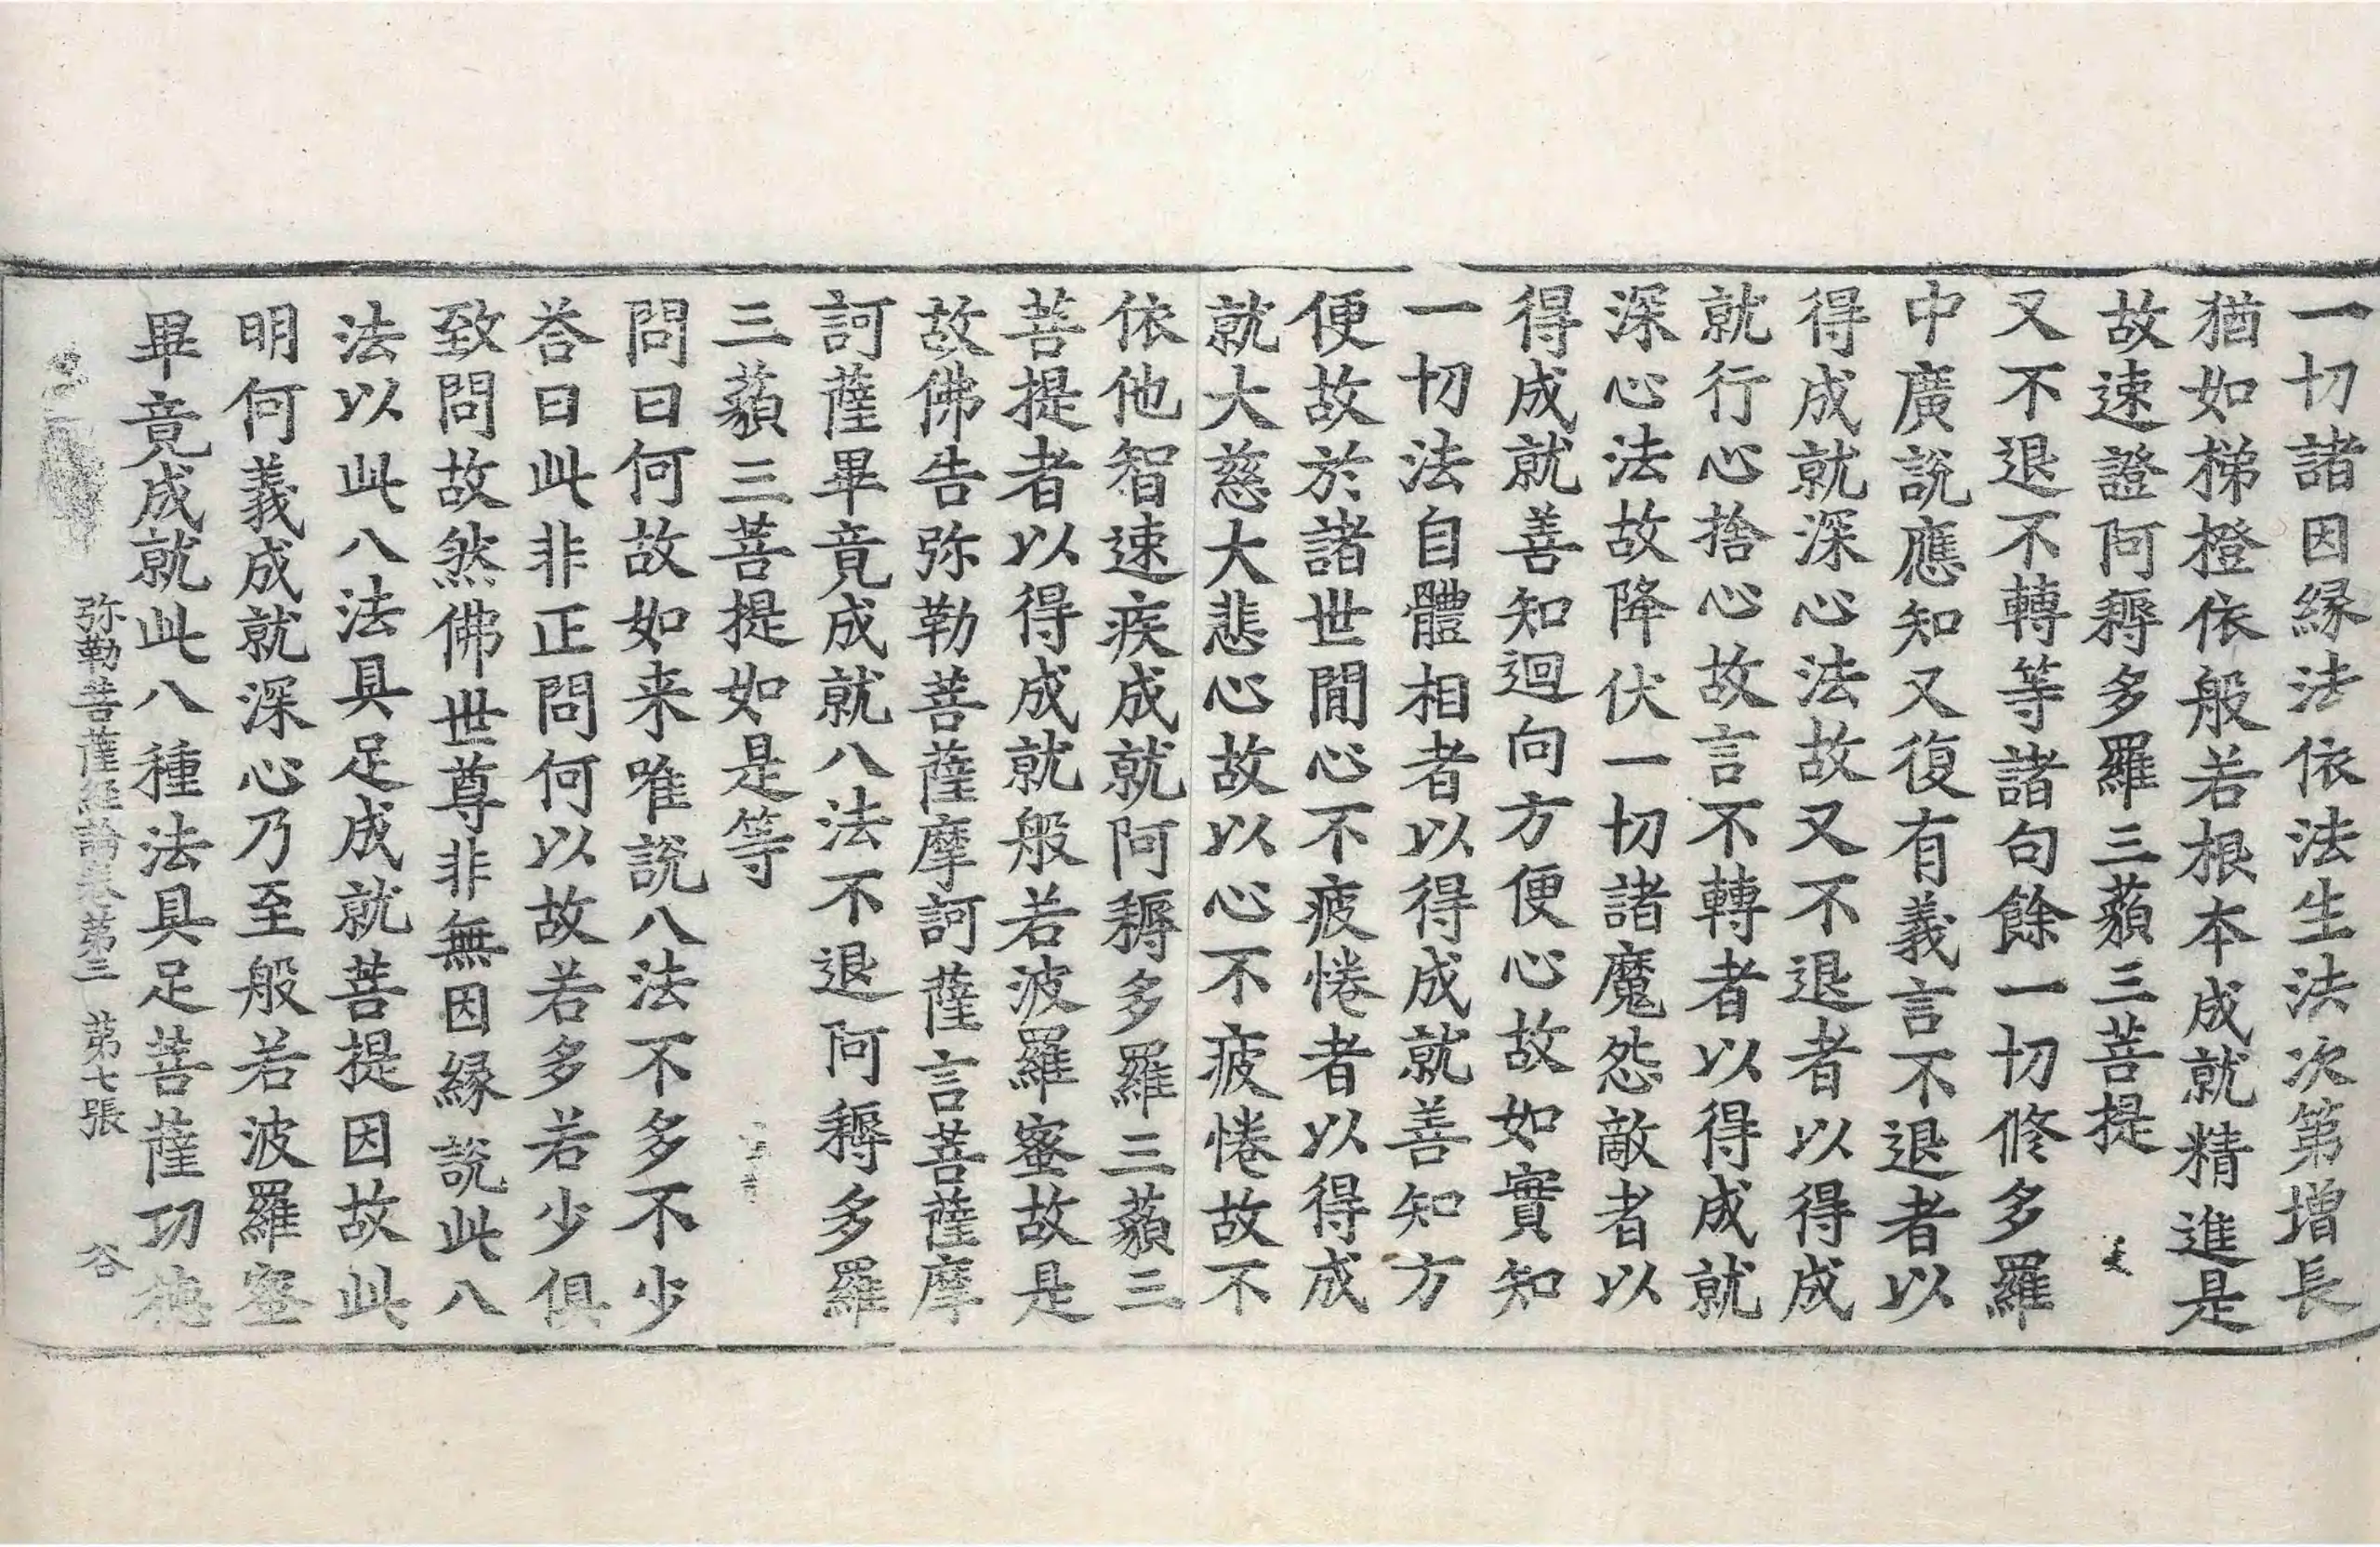 一切諸因緣法依法生法次第增長
猶如梯橙依般若根本成就精進是
故速證阿耨多羅三藐三菩提
又不退不轉等諸句餘一切修多羅
中廣説應知又復有義言不退者以
得成就深心法故又不退者以得成
就行心捨心故言不轉者以得成就
深心法故降伏一切諸魔怨敵者以
得成就善知迴向方便心故如實知
一切法自體相者以得成就善知方
便故於諸世間心不疲惓者以得成
就大慈大悲心故以心不疲惓故不
依他智速疾成就阿耨多羅三藐三
菩提者以得成就般若波羅蜜故是
故佛告弥勒菩薩摩訶薩言菩薩摩
訶薩畢竟成就八法不退阿耨多羅
三藐三菩提如是等
問曰何故如来唯説八法不多不少
荅曰此非正問何以故若多若少俱
致問故然佛世尊非無因緣説此八
法以此八法具足成就菩提因故此
明何義成就深心乃至般若波羅蜜
畢竟成就此八種法具足菩薩功德
弥勒菩薩經論卷第三 第七張 谷